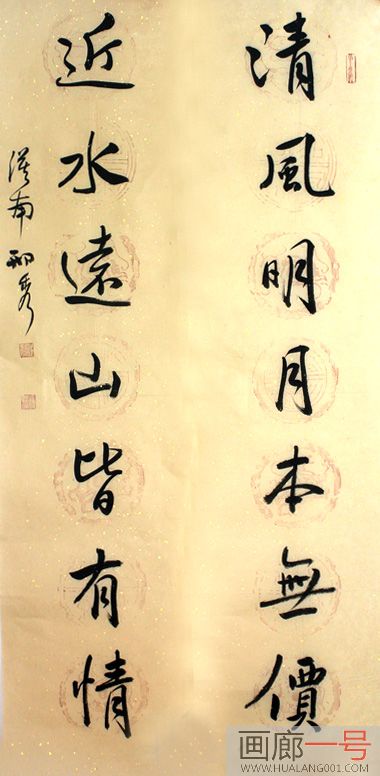 清風明月本無價
近水遠山皆有情
漢南
画廊一号
WWW.HUALANG001.COM